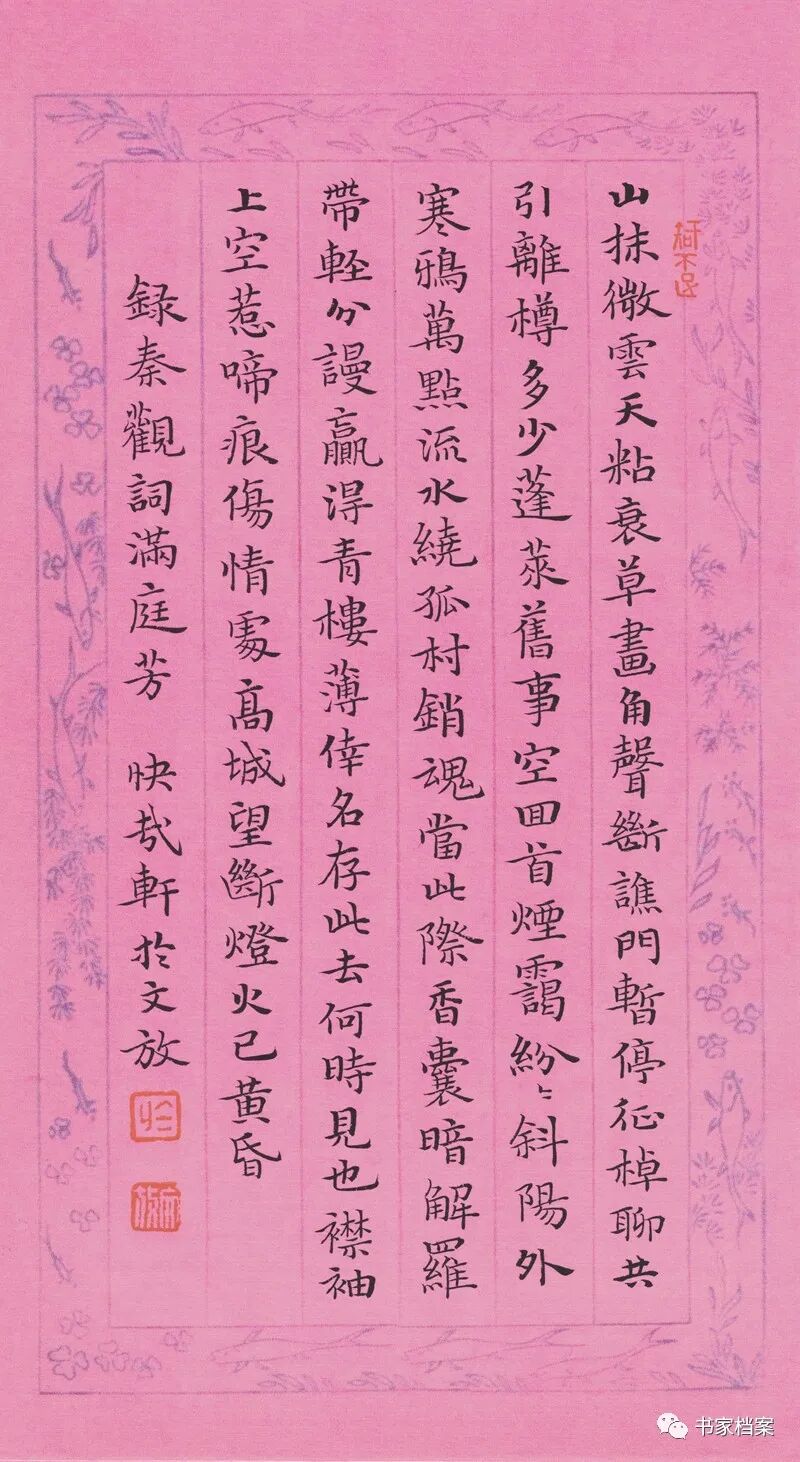 山抹微雲天粘衰草畫角聲斷譙門暫停征棹聊共
引離樽多少蓬萊舊事空回首煙靄紛〻斜陽外
寒鴉萬點流水繞孤村銷魂當此際香囊暗解羅
帶輕分謾贏得青樓薄倖名存此去何時見也襟袖
上空惹啼痕傷情處高城望斷燈火已黃昏
錄秦觀詞滿庭芳 快哉軒於文放
書家档案